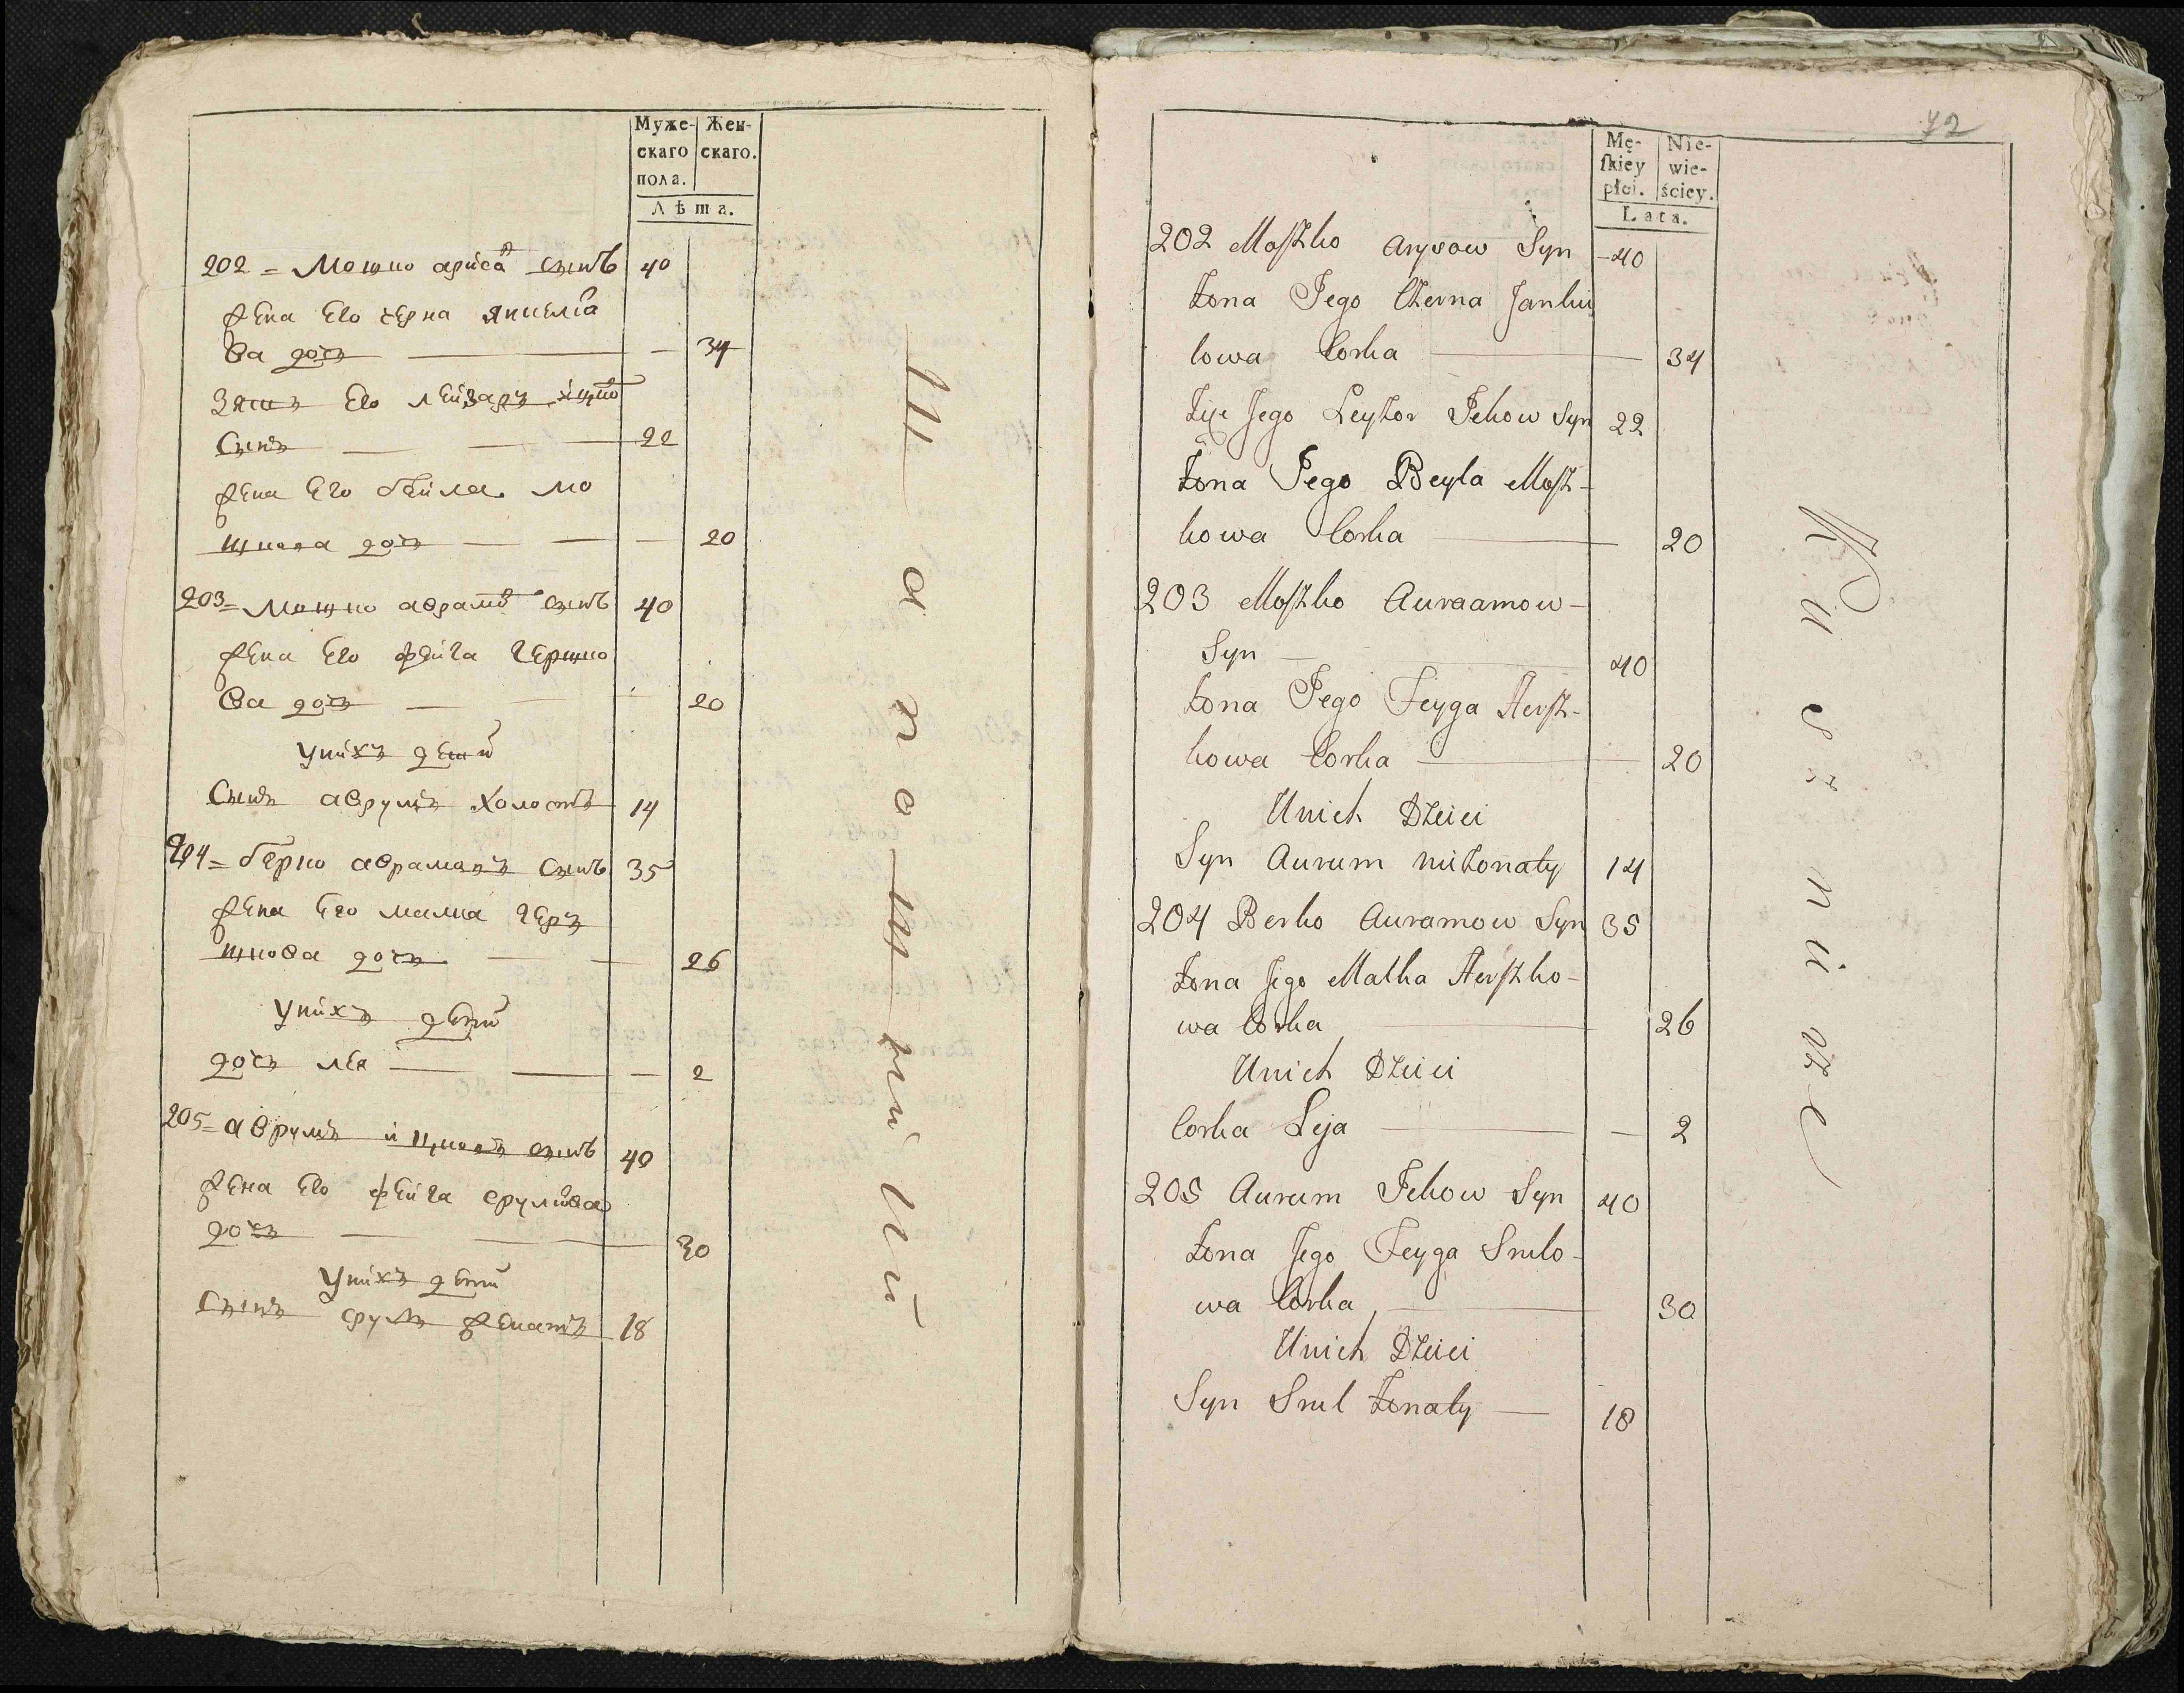 Муже- Жен-
скаго скаго.
пола.
Лѣта.
202 = Мошко арисов сынъ 40
жена его черна янкелio
ва дочь — — 34
Зять его лейзаръ ицко
сынъ — — 22
жена Его бейла мо
шкова дочь — — — 20
203 = Мошко аврамов сынъ 40
жена Его фейга гершко
ва дочь — — — 20
У них дети
Сынъ аврумъ холостъ 14
204 = берко аврамовъ сынъ 35
жена Его малка герь
шкова дочь — — 26
У нихъ дѣти
дочь лея — — — 2
205 = аврумъ ицковъ сынъ 40
жена Его фейга срулиова
дочь — — 30
У нихъ дѣти
Сынъ сруль женатъ 18
72
Mę- Nie-
skiey wie-
płci. ściey.
Lata.
202 Moszko Arysow Syn - 40
żona Jego Czerna Jankie
lowa Corka — — 34
Jego Leyzor Jckow Syn 22
żona Jego Beyla Mosz-
kowa Corka — 20
203 Moszko Auraamow -
Syn — 40
żona Jego Feyga Hersz-
kowa Corka — 20
Unich Dzieci
Syn Aurum nieżonaty 14
204 Berko Auramow Syn 35
żona Jego Malka Herszko-
wa Corka — 26
Unich Dzieci
Corka Leja — — 2
205 Aurum Jckow Syn 40
żona Jego Feyga Srulo-
wa Corka — 30
Unich Dzieci
Syn Srul żonaty — 18